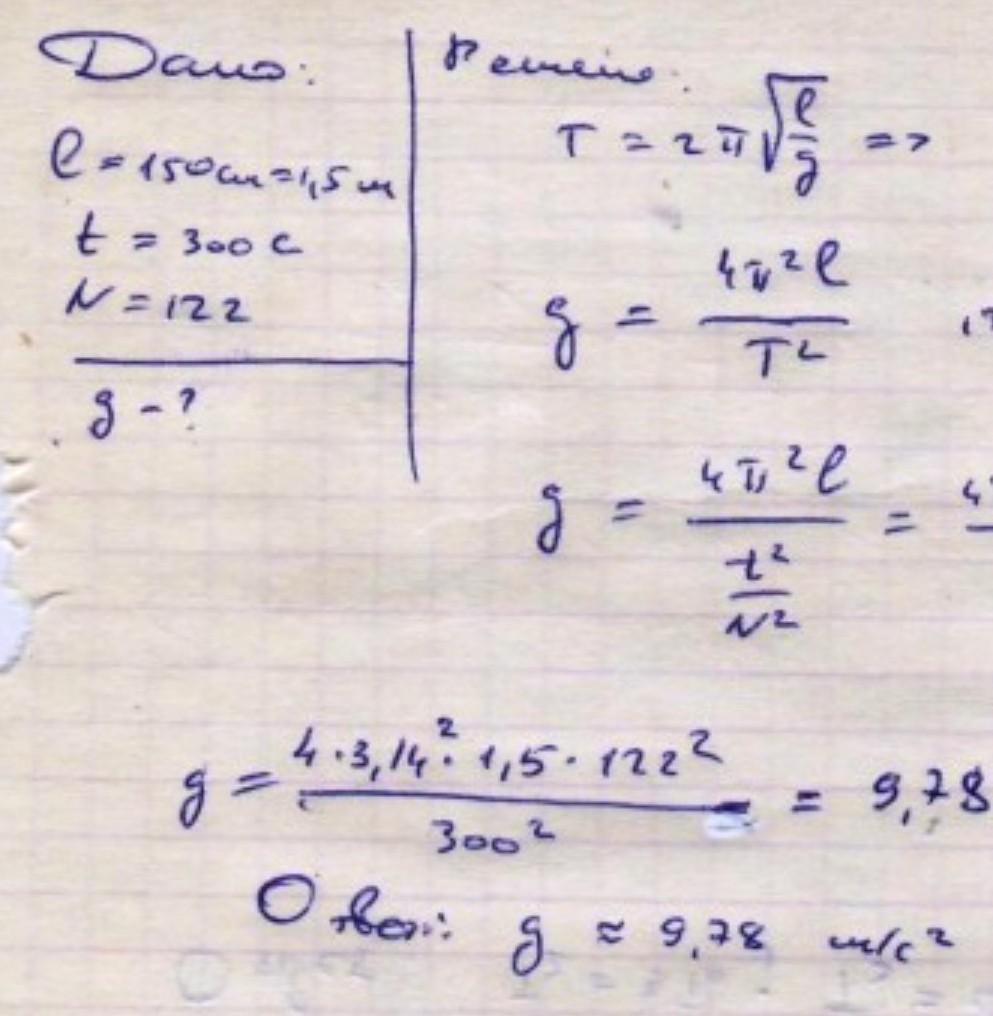 Дано:
l = 150 см = 1,5 м
t = 300 с
N = 122
g - ?
Решение:
T = 2π√(l/g) =>
g = 4π²l / T²
g = 4π²l / (t²/N²) =
g = 4·3,14²·1,5·122² / 300² = 9,78
Ответ: g ≈ 9,78 м/с²